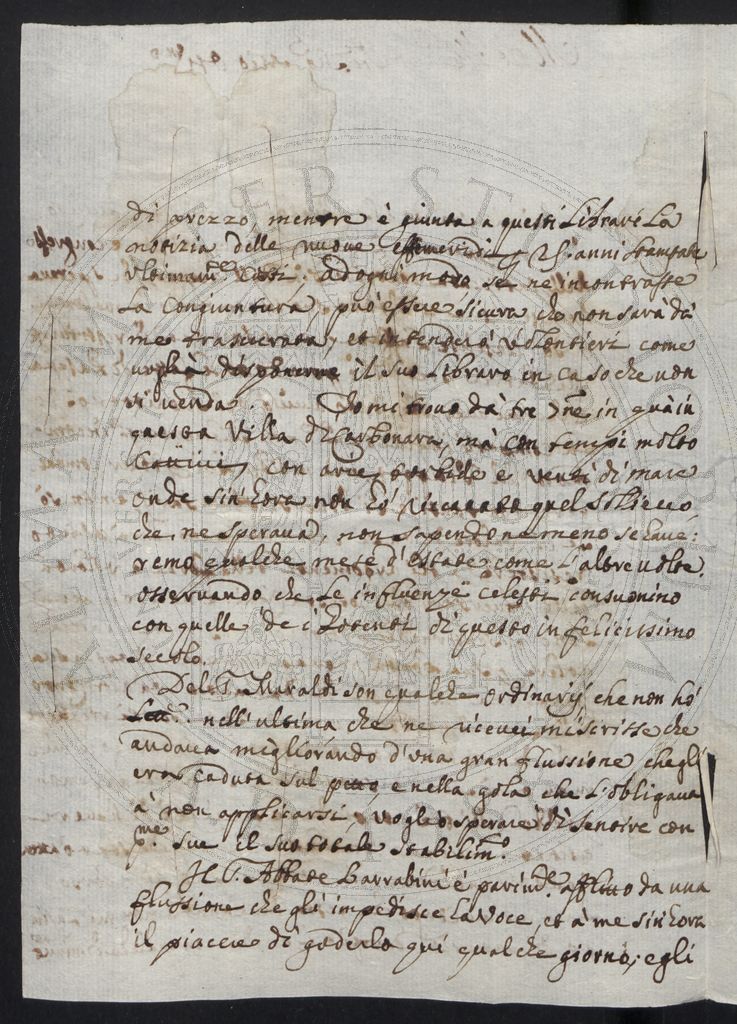 di prezzo mentre è giunta a questi Librari La
notizia delle nuove effemeridi p 25. anni stampate
Vltimam.te ad ogni modo se ne incontrasse
La Congiuntura, può esser sicura che non sarà dà
me trascurata, et intenderà Volontieri come
voglia disponerne il suo Libraro in caso che non
si venda. Jo mi trouo dà tre in quà in
questa Villa di Carbonara, mà con tempi molto
Cattiui, con aree torbide e venti di mare
onde sin'hora non hò riccauato quel sollieuo,
che ne speraua, non sapendo ne meno se haue:
remo qualche mese d'estate come L'altre uolte.
osseruando che Le influenze celesti consuonino
con quelle de i Potenti di questo infelicissimo
secolo.
Del S. Maraldi son qualche ordinarij che non hò
Lett.e nell'ultima che ne riceuei mi scrisse che
andaua migliorando d'una gran flussione chegli
era caduta sul petto, e nella gola che L'obligaua
à non applicarsi, voglio sperare di sentire con
p.me sue il suo totale stabilim.o
Il S. Abbate Barrabini è parim.te afflitto da una
flussione che gli impedisce La Voce, et à me sin'hora
il piacere di goderlo qui qualche giorno; egli